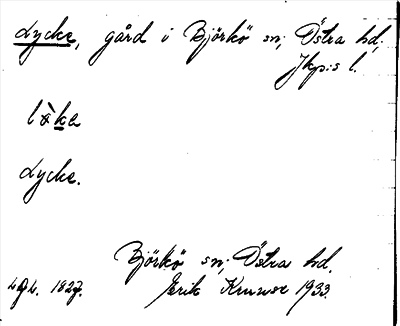 Lycke, gård i Björkö sn; Östra hd;
Jkp:s l.
Lycke.
Björkö sn; Östra hd.
Erik Kruuse 1933.